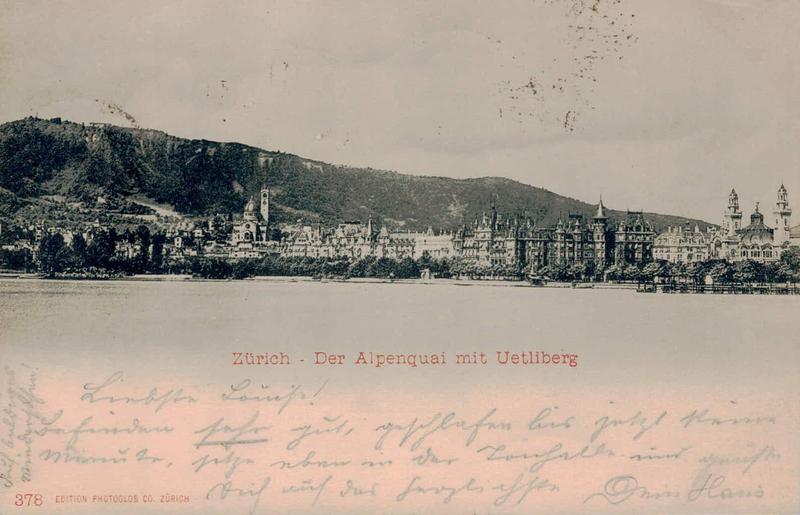 Zürich - Der Alpenquai mit Uetliberg
Liebste Louise!
Befinden sehr gut, geschlafen bis jetzt keine
Minute, sitze eben in der Tonhalle und grüsse
Dich auf das herzlichste Dein Hans
Auf baldiges
Wiedersehen!
378 EDITION PHOTOGLOB CO. ZÜRICH